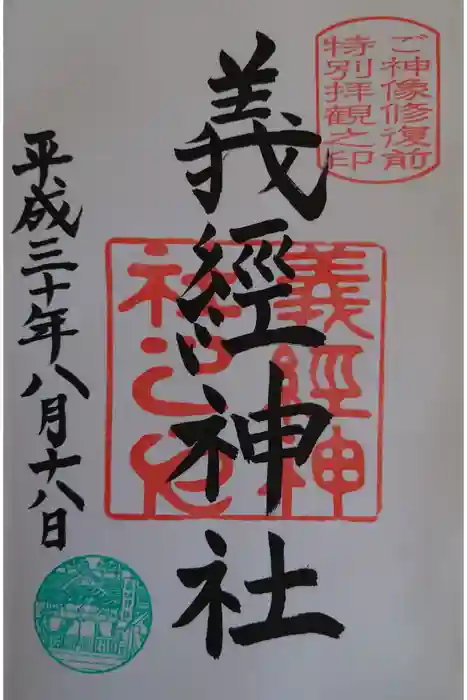 ご神像修復前
特別拝観之印
義經神社
義經神
社
平成三十年八月十八日